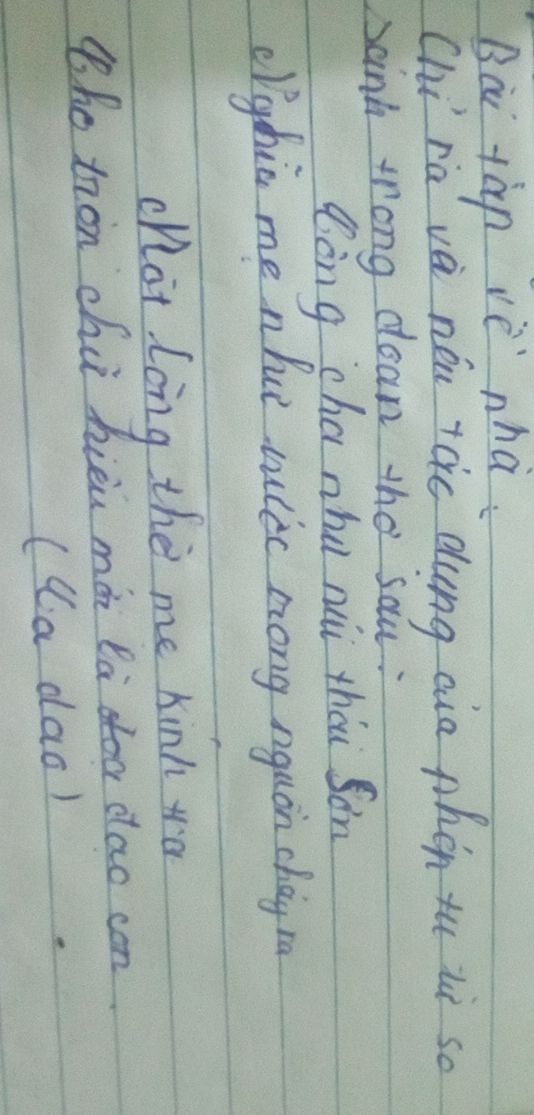 Bài tập về nhà
Chỉ ra và nêu tác dụng của phép tu từ so
sánh trong đoạn thơ sau:
Công cha như núi thái Sơn
Nghĩa mẹ như nước trong nguồn chảy ra
Một lòng thờ mẹ kính cha
Cho tròn chữ hiếu mới là đạo con.
(Ca dao)